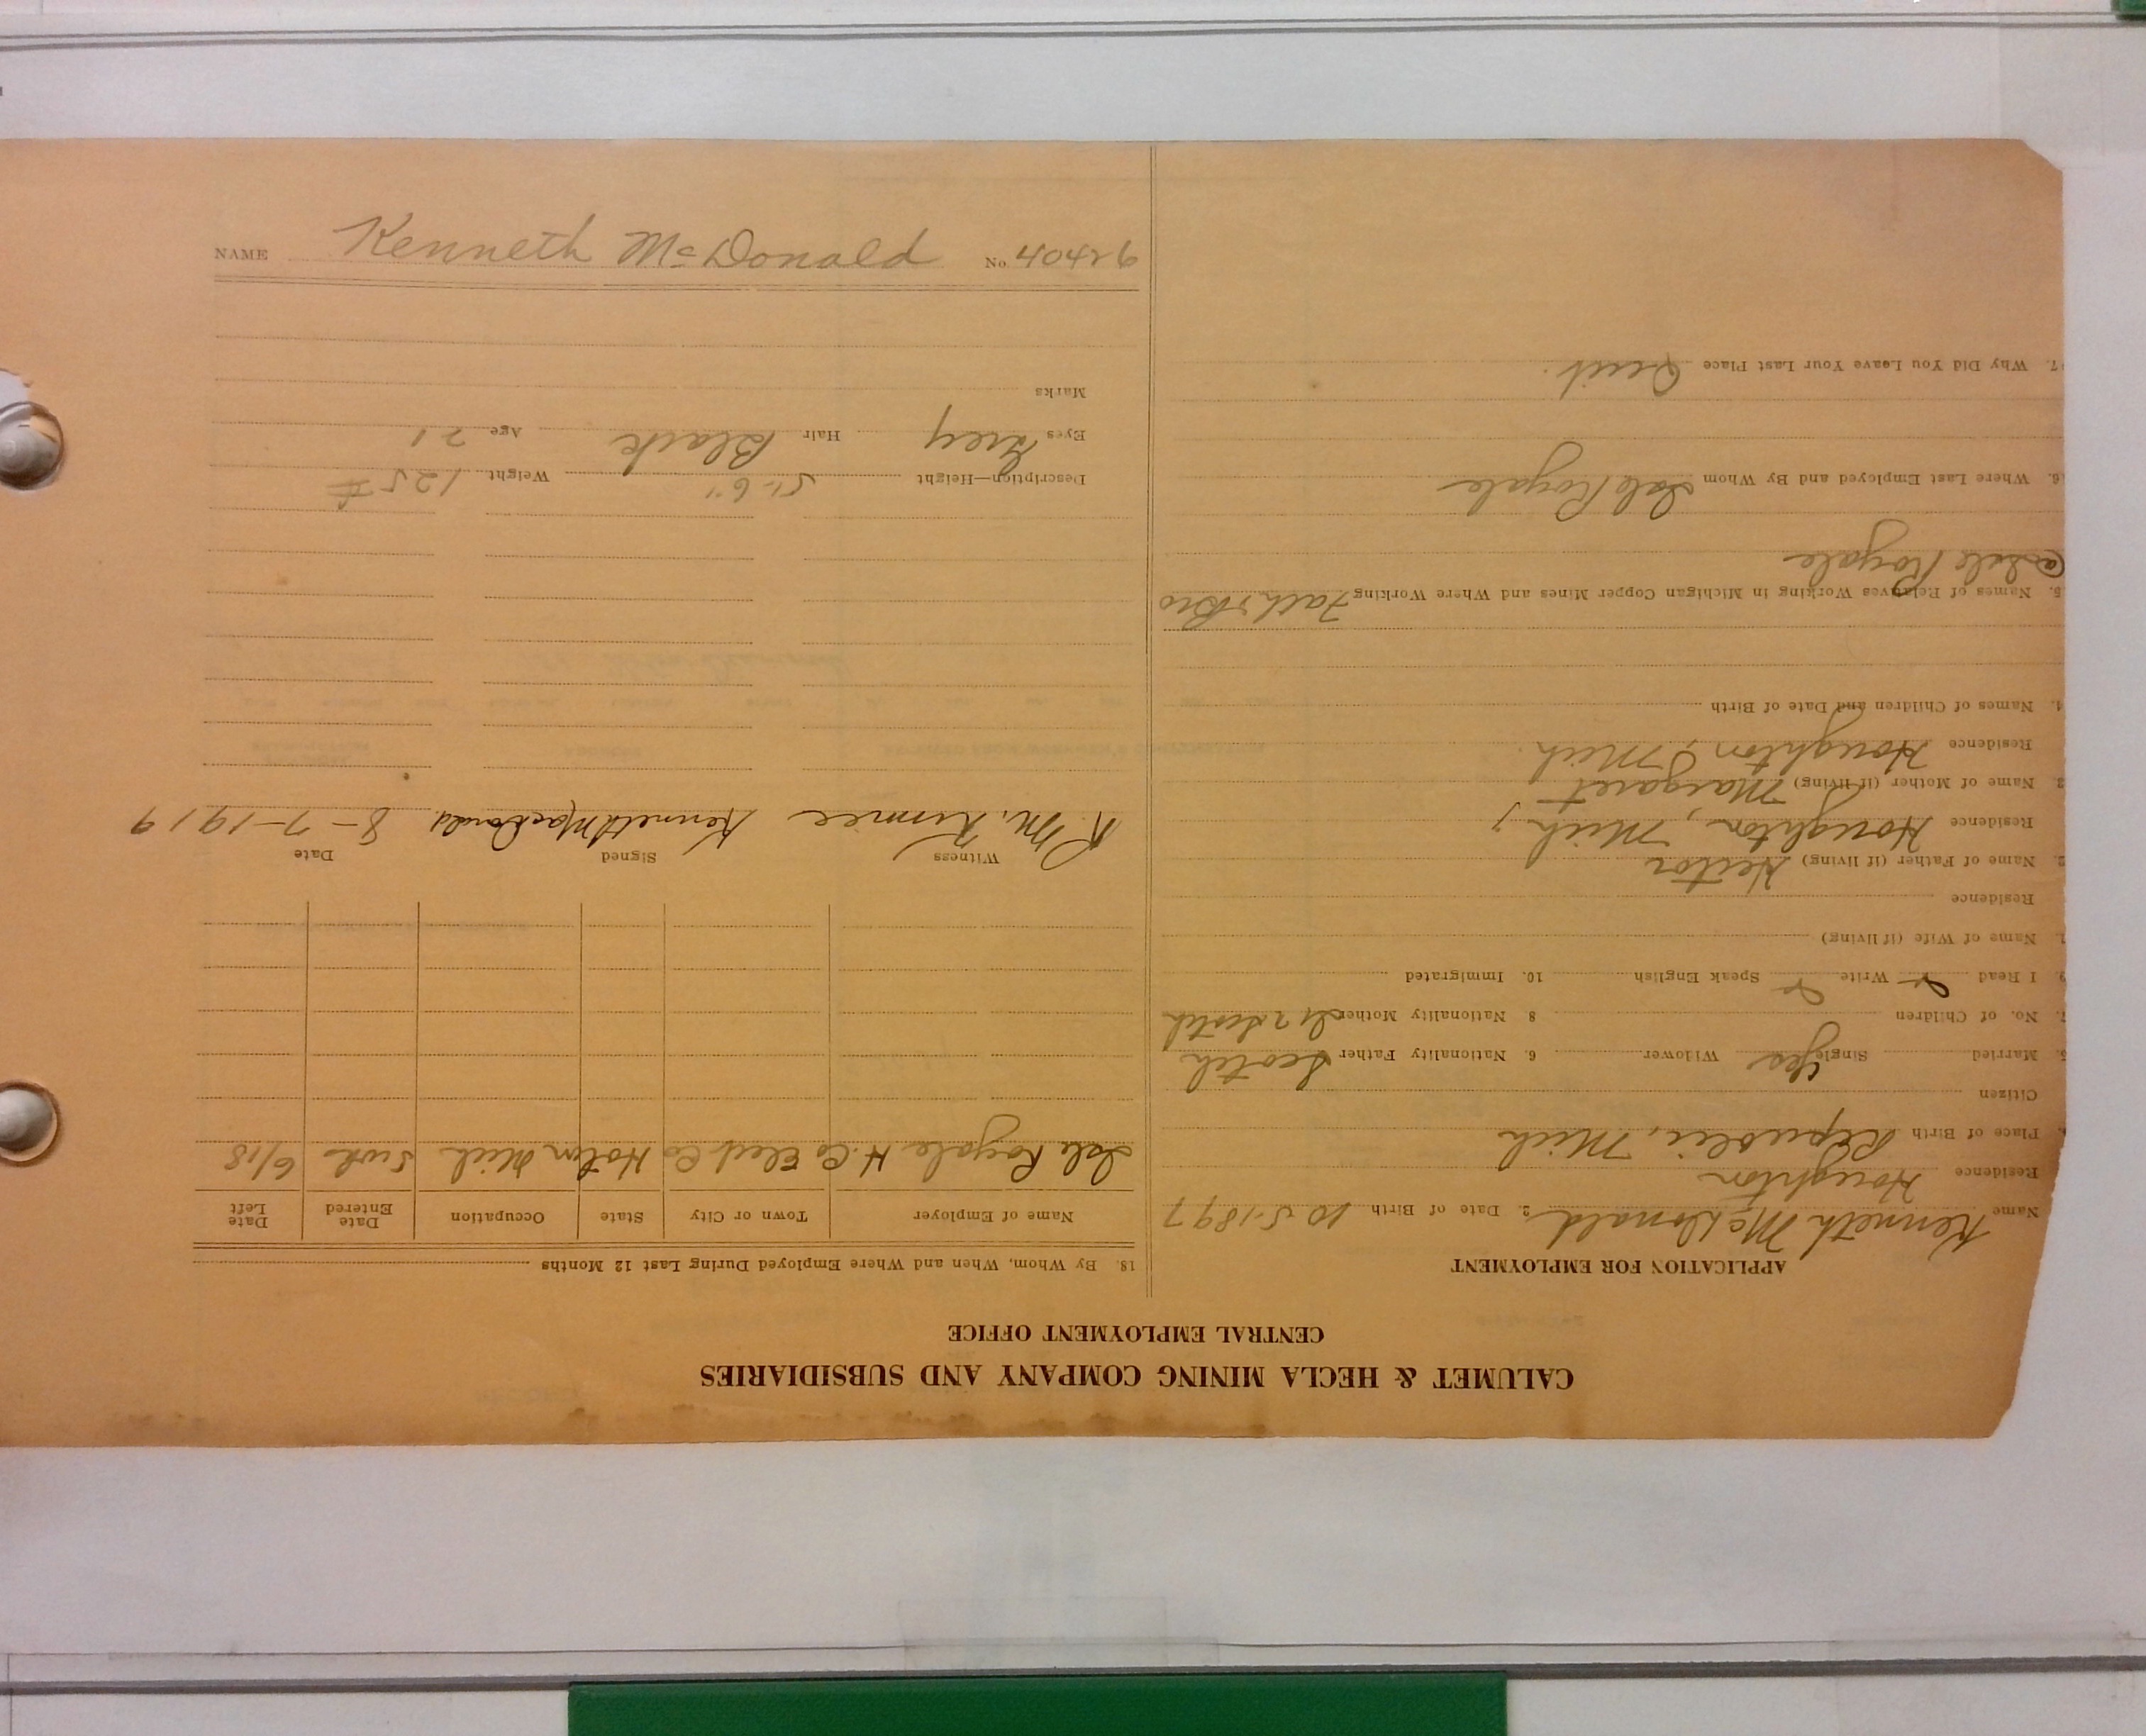 CALUMET & HECLA MINING COMPANY AND SUBSIDIARIES
CENTRAL EMPLOYMENT OFFICE
APPLICATION FOR EMPLOYMENT
Name Kenneth McDonald 2. Date of Birth 10-5-1897
Residence Houghton
Place of Birth Republic, Mich
Citizen
Married Single Yes Widower 6. Nationality Father Scotch
7. No. of Children 8 Nationality Mother Scotch
9. I Read Write Speak English 10. Immigrated
1. Name of Wife (if living)
Residence
2. Name of Father (if living) Hector
Residence Houghton, Mich
3 Name of Mother (if living) Margaret
Residence Houghton, Mich.
4. Names of Children and Date of Birth
5. Names of Relatives Working in Michigan Copper Mines and Where Working Fath & Bro
@ Isle Royale
6. Where Last Employed and By Whom Isle Royale
7. Why Did You Leave Your Last Place Quit.
18. By Whom, When and Where Employed During Last 12 Months
Name of Employer Town or City State Occupation Date Entered Date Left
Isle Royale H. Co Elect Co Hotn Mich 6/18
Witness Signed Date
R. M. Kenneth MacDonald 8-7-1919
Description—Height 5'-6" Weight 125 #
Eyes Grey Hair Black Age 21
Marks
NAME Kenneth McDonald No. 40426